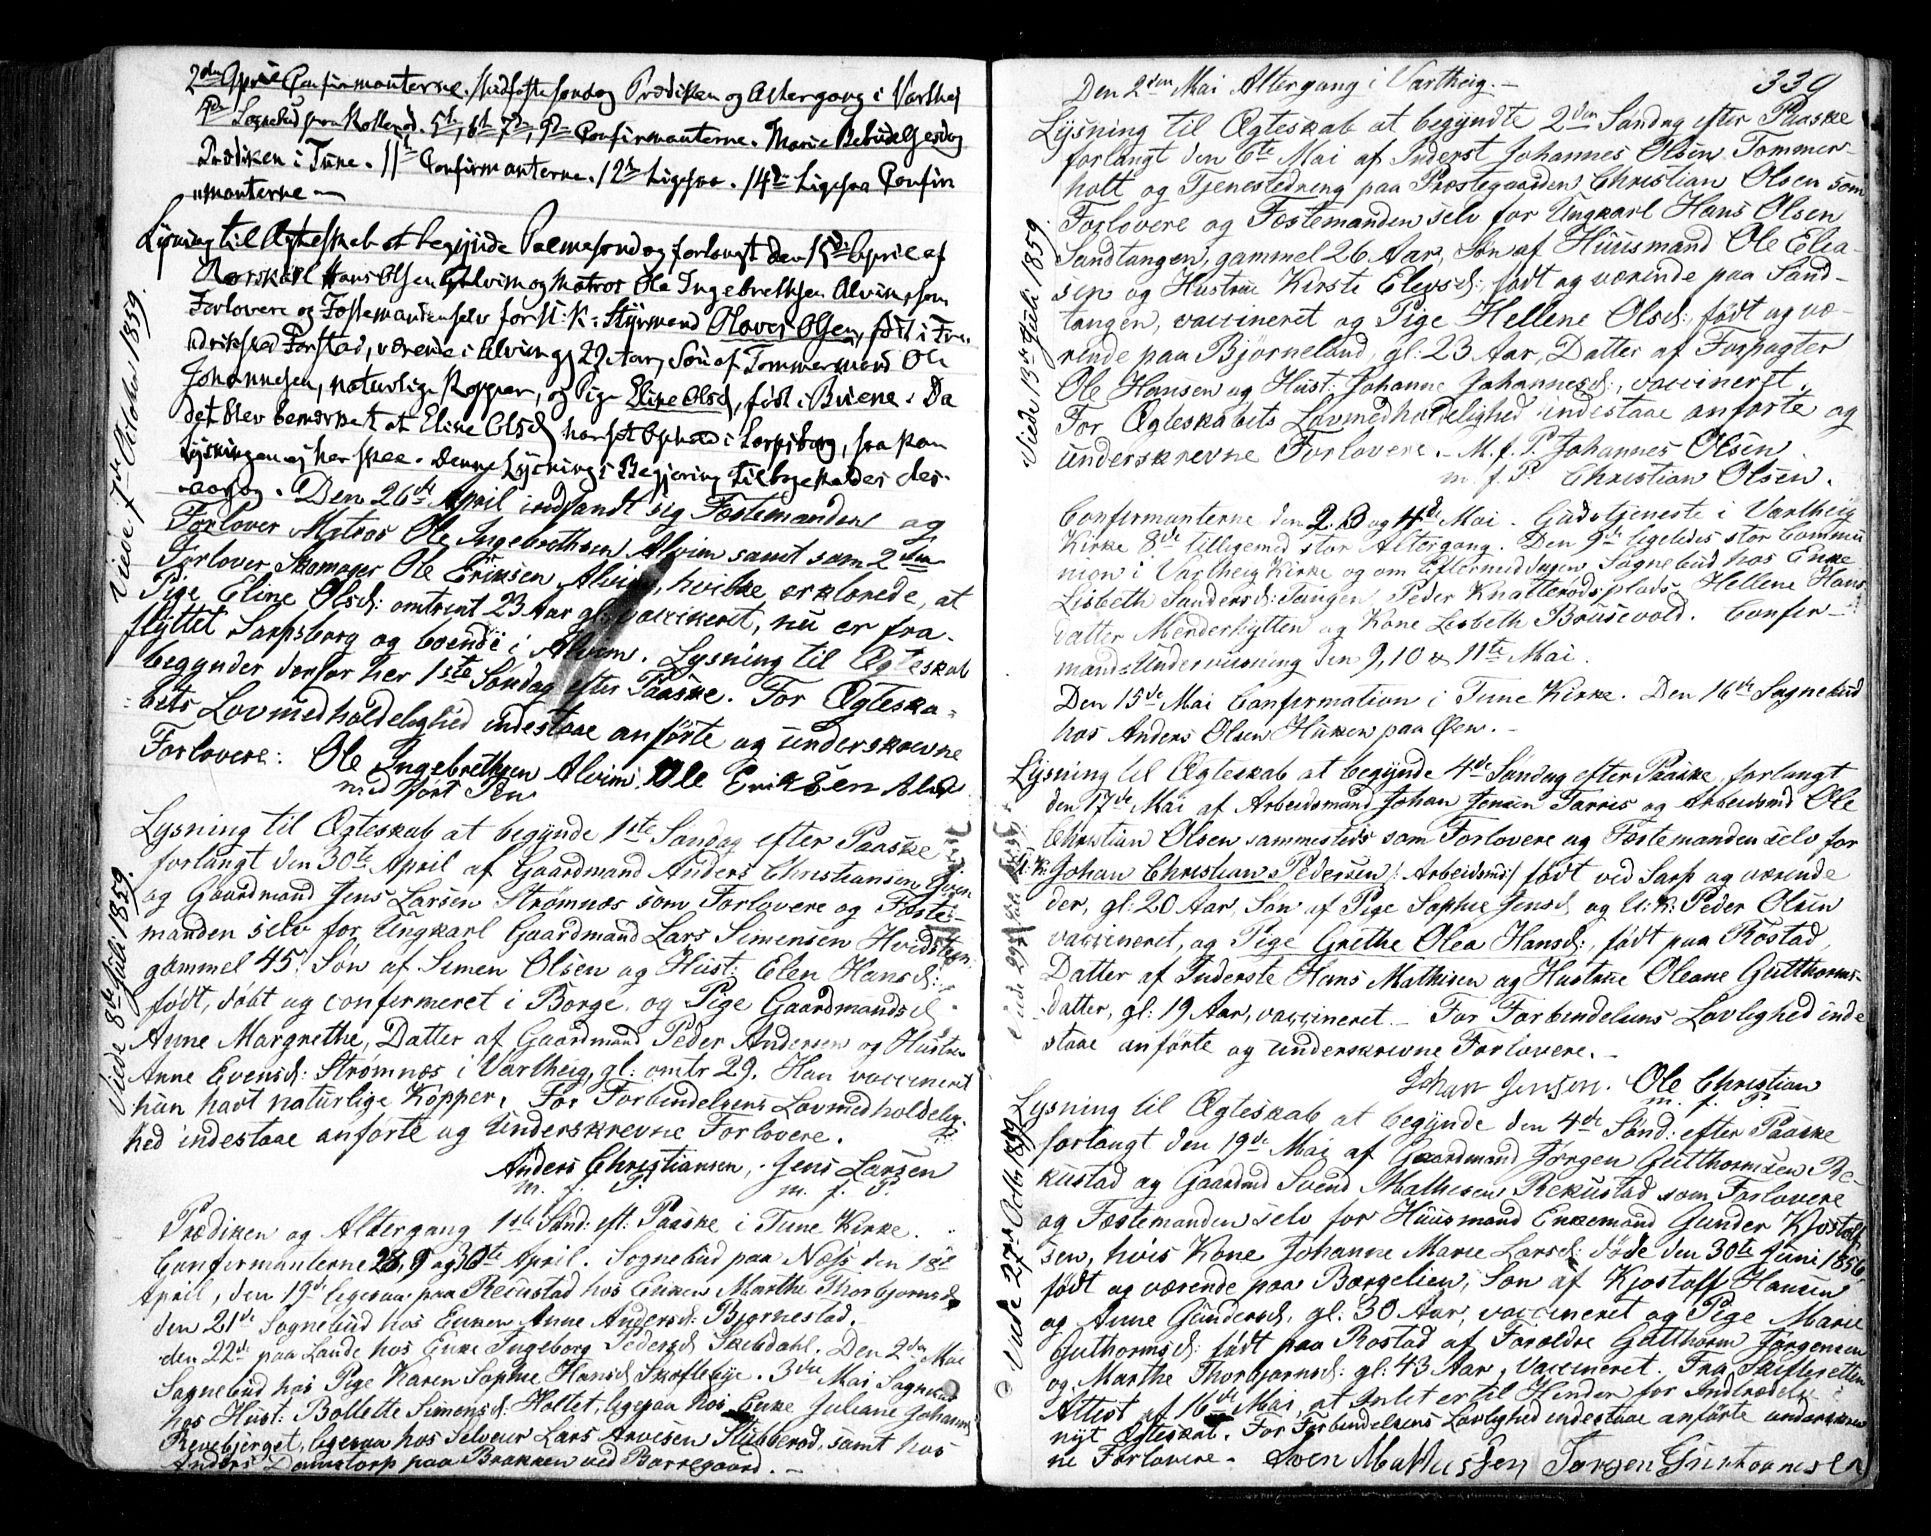 2den April Confirmanterne. Skudfoste Søndag Prædiken og Altergang i Varthej
Sognebud paa Rollerød. 5te, 6te 7de, 9de Confirmanterne. Mariæ Bebudelsesdag
Prædiken i Tune. 11te Confirmanterne. 12te Ligesaa. 14de Ligesaa Confir
manterne —
Lysning til Ægteskab at begynde Palmesøndag forlangt den 15de April af
Hans Olsen Alvim og Matros Ole Ingebrethsen Alvim, som
Forlovere og Fæstemanden selv for U: K: Styrmand Olaves Olsen, født i Fre
drikstad Forstad, værende i Alvim gl 29 Aar, Søn af Tømmermand Ole
Johannesen, naturlige Kopper, og Pige Eline Olsd, født i Buene. Da
det blev bemærket at Eline Olsd har sit Ophold i Sarpsborg, saa kan
Lysningen ej her skee. Denne Lysnings Begjering tilbageholdes des-
aarsag. Den 26de April indfandt sig Fæstemanden og
Forlover Matros Ole Ingebrethsen Alvim samt som 2den
Forlover Skomager Ole Eriksen Alvim, hvilke erklærede, at
Pige Eline Olsd: omtrent 23 Aar gl: vaccineret, nu er fra-
flyttet Sarpsborg og boende i Alvim. Lysning til Ægteskab
begynder derfor her 1ste Søndag efter Paaske. For Ægteska-
bets Lovmedholdelighed indestaae anførte og underskrevne
Forlovere: Ole Ingebrethsen Alvim. Ole Eriksen Alvim
med ført Pen
Viede 7de October 1859.
Lysning til Ægteskab at begynde 1ste Søndag efter Paaske
forlangt den 30te April af Gaardmand Anders Christiansen
og Gaardmand Jens Larsen Strømnæs som Forlovere og Fæste-
manden selv for Ungkarl Gaardmand Lars Simensen Hvidsteen
gammel 45. Søn af Simen Olsen og Hust: Elen Hansd:
født, døbt og confirmeret i Borge, og Pige Gaardmandsd
Anne Margrethe, Datter af Gaardmand Peder Andersen og Hustru
Anne Evensd: Strømnæs i Vartheig, gl: omtr 29. Han vaccineret
hun havt naturlige Kopper. For Forbindelsens Lovmedholdelig
hed indestaae anførte og Underskrevne Forlovere.
Anders Christiansen, Jens Larsen
m. f. P. m. f. P.
Viede 8de Juli 1859.
Prædiken og Altergang 1ste Sønd: eft: Paaske i Tune Kirke.
Confirmanterne 28, 9 og 30te April. Sognebud paa Næss den 18de
April, den 19de ligesaa paa Recustad hos Enken Marthe Thorbjørnsd
den 21de Sognebud hos Enken Anne Andersd: Bjørnestad.
den 22de paa Lande hos Enke Ingeborg Pedersd Skibdahl. Den 2den Mai
Sognebud hos Pige Karen Sophie Hansd Skoflebye. 3die Mai Sognebud
hos Hust: Bollette Simensd: Holtet, ligesaa hos Enke Juliane Johannsd
Revebjerget, ligesaa hos Selveier Lars Arvesen Stubberød, samt hos
Anders Damstorp paa Brakken ved Borregaard. —
339
Den 2den Mai Altergang i Vartheig. —
Lysning til Ægteskab at begyndte 2den Søndag efter Paaske
forlangt den 6te Mai af Inderst Johannes Olsen Tommer-
holt og Tjenestedreng paa Præstegaarden Christian Olsen som
Forlovere og Fæstemanden selv for Ungkarl Hans Olsen
Sandtangen, gammel 26 Aar, Søn af Huusmand Ole Elia-
sen og Hustrue Kirsti Elevsd: født og værende paa Sand-
tangen, vaccineret og Pige Hellene Olsd:, født og væ-
rende paa Bjørneland, gl: 23 Aar, Datter af Forpagter
Ole Hansen og Hust: Johanne Johannesd:, vaccineret.
For Ægteskabets Lovmedholdelighed indestaae anførte og
underskrevne Forlovere. — M. f. P. Johannes Olsen
m. f. P. Christian Olsen.
Viede 13de Juli 1859.
Confirmanterne den 2. 3 og 4de Mai. Gudstjeneste i Vartheig
Kirke 8de tilligemed stor Altergang. Den 9de ligeledes stor Commu
nion i Vartheig Kirke og om Eftermiddagen Sognebud hos Enke
Lisbeth Sandersd: Tangen, Peder Knatterødsplads, Hellene Hans
datter Menderhytten og Kone Lisbeth Brusevold. Confir-
mandsUnderviisning den 9, 10 & 11te Mai.
Den 15de Mai Confirmation i Tune Kirke. Den 16de Sognebud
hos Anders Olsen Huken paa Øen. —
Lysning til Ægteskab at begynde 4de Søndag efter Paaske, forlangt
den 17de Mai af Arbeidsmand Johan Jensen Tarris og Arbeidsmd Ole
Christian Olsen sammesteds som Forlovere og Fæstemanden selv for
U: K: Johan Christian Pedersen /: Arbeidsmd :/ født ved Sarp og værende
der, gl: 20 Aar, Søn af Pige Sophie Jensd og U: K: Peder Olsen
vaccineret, og Pige Grethe Olea Hansd:, født paa Rostad,
Datter af Inderste Hans Mathisen og Hustrue Oleane Gutthorms-
datter, gl: 19 Aar, vaccineret. — For Forbindelsens Lovlighed inde
staae anførte og underskrevne Forlovere. —
Johan Jensen. Ole Christian
m. f. P.
Lysning til Ægteskab at begynde den 4de Sønd: efter Paaske
forlangt den 19de Mai af Gaardmand Jørgen Gutthormsen Re-
kustad og Gaardmd Svend Mathisen Rekustad som Forlovere
og Fæstemanden selv for Huusmand Enkemand Gunder Kjøstolf
sen, hvis Kone Johanne Marie Larsd: døde den 30te Juni 1856,
født og værende paa Borgelien, Søn af Kjøstolf Hansen
og Anne Gundersd: gl: 30 Aar, vaccineret og Pige Marie
Guthormsd: født paa Rostad af Forældre Gutthorm Jørgensen
og Marthe Thorbjørnsd: gl: 43 Aar, vaccineret. Fra Skifteretten
Attest af 16de Mai, at Intet er til Hinder for Indtrædelse i
nyt Ægteskab. For Forbindelsens Lovlighed indestaae anførte underskrev
ne Forlovere. — Sven Mathissen Jørgen Guthormsen
Viede 27de Octbr 1859